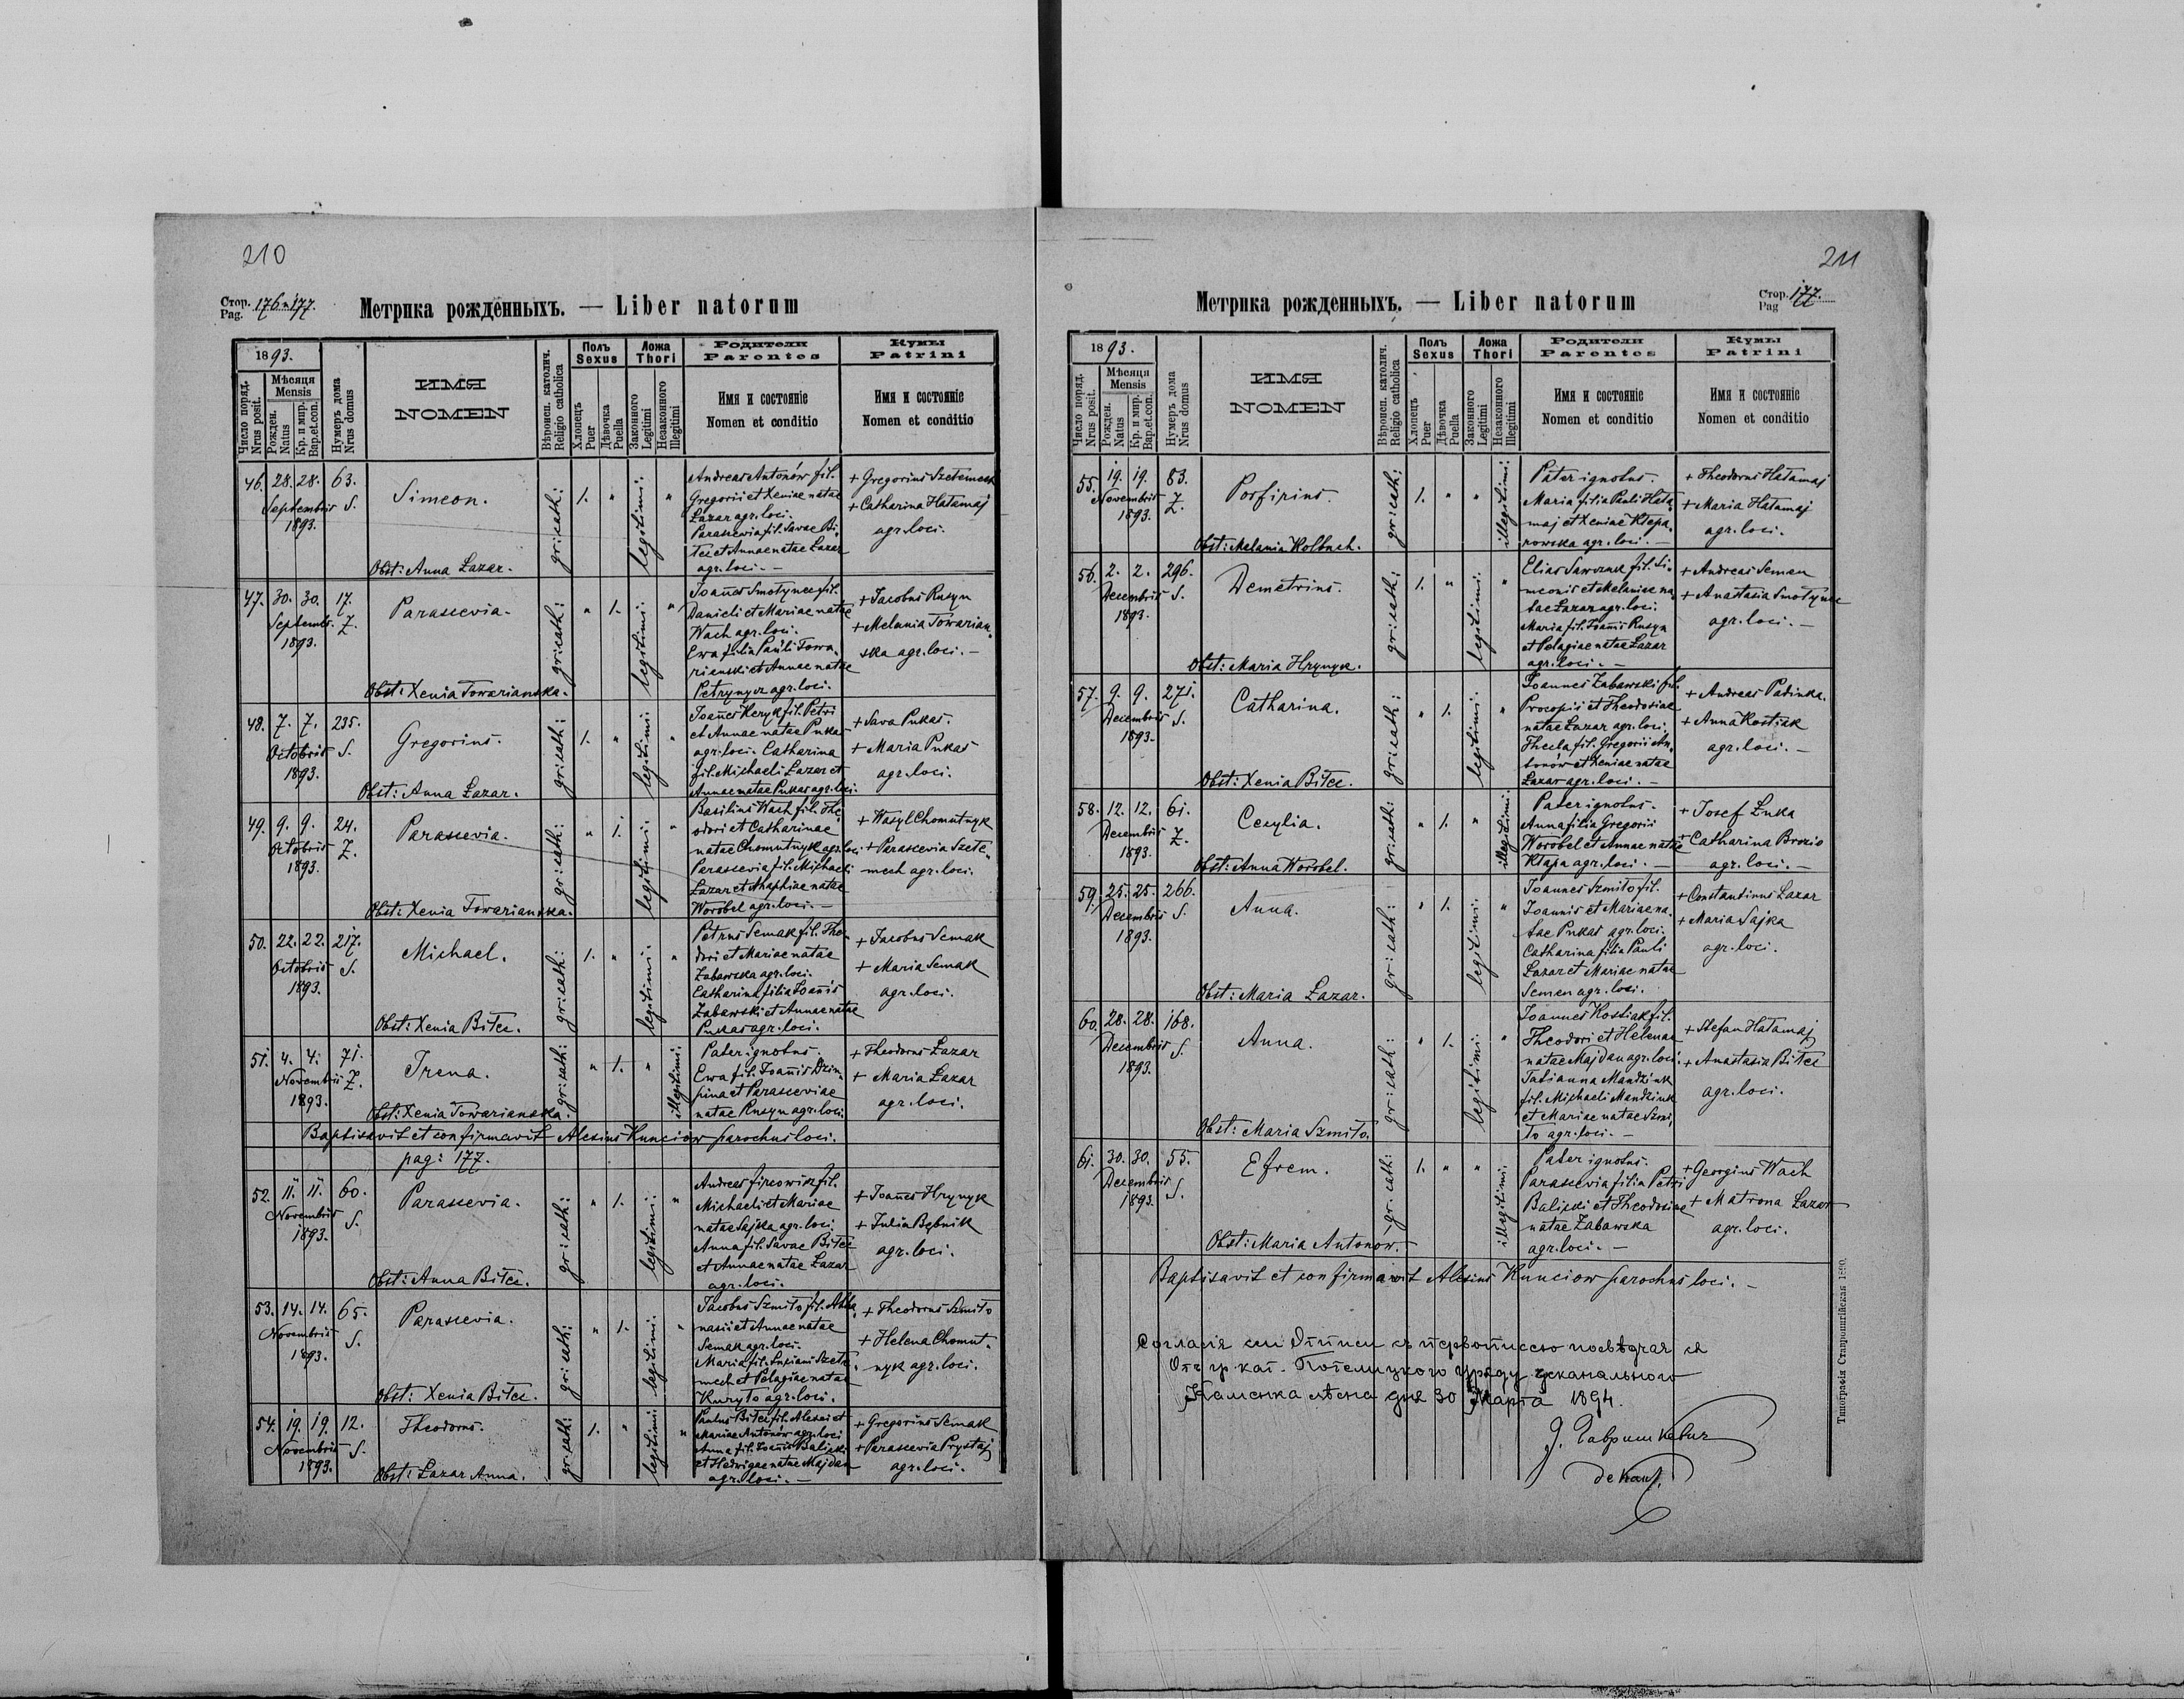 210
Стор. Pag. 176 и 177.
Метрика рожденныхъ. — Liber natorum
1893.
Число поряд. Nrus posit.
Мѣсяця Mensis
Рожден. Natus
Кр. и мир. Bap.et.con.
Нумеръ дома Nrus domus
ИМЯ
NOMEN
Вѣроисп. католич. Religio catholica
Полъ Sexus
Хлопецъ Puer
Дѣвочка Puella
Ложа Thori
Законного Legitimi
Незаконного Illegitimi
Родители
Parentes
Имя и состояніе
Nomen et conditio
Кумы
Patrini
Имя и состояніе
Nomen et conditio
46. 28. 28. 63.
Septembris S.
1893.
Simeon.
Obst: Anna Łazar.
gr: cath:
1. "
legitimi: "
Andreas Antonów fil.
Gregorii et Xeniae natae
Łazar agr. loci.
Parascevia fil. Savae Bi-
łec et Annae natae Łazar
agr. loci. —
+ Gregorius
+ Catharina Hałamaj
agr. loci.
47. 30. 30. 17.
Septemb. Z.
1893.
Parascevia.
Obst: Xenia Towarianska.
gr: cath:
" 1.
legitimi: "
Joañes Smołynec fil.
Danieli et Mariae natae
Wach agr. loci.
Ewa filia Pauli Towa-
rianski et Annae natae
Petrynycz agr. loci.
+ Jacobus Rusyn
+ Melania Towarian-
ska agr. loci. —
48. 7. 7. 235.
Octobris S.
1893.
Gregorius.
Obst: Anna Łazar.
gr: cath:
1. "
legitimi: "
Joañes Keryk fil. Petri
et Annae natae Pukas
agr. loci. Catharina
fil. Michaeli Łazar et
Annae natae Pukas agr. loci.
+ Sava Pukas.
+ Maria Pukas
agr. loci.
49. 9. 9. 24.
Octobris Z.
1893.
Parascevia.
Obst: Xenia Towarianska.
gr: cath:
" 1.
legitimi: "
Basilius Wach fil. The-
odori et Catharinae
natae Chomutnyk agr. loci
Parascevia fil. Michaeli
Łazar et Anaphiae natae
Worobel agr. loci. —
+ Wasyl Chomutnyk
+ Parascevia Szete-
mech agr. loci.
50. 22. 22. 217.
Octobris S.
1893.
Michael.
Obst: Xenia Biłec.
gr: cath:
1. "
legitimi: "
Petrus Semak fil. Theo-
dori et Mariae natae
Zabawska agr. loci.
Catharina filia Joañis
Zabawski et Annae natae
Pukas agr. loci.
+ Jacobus Semak
+ Maria Semak
agr. loci.
51. 4. 4. 71.
Novembris Z.
1893.
Irena.
Obst: Xenia Towarianska.
gr: cath:
" 1. "
illegitimi:
Pater ignotus.
Ewa fil. Joañis Dziu-
pina et Parasceviae
natae Rusyn agr. loci.
+ Theodorus Łazar
+ Maria Łazar
agr. loci.
Baptisavit et confirmavit Alexius Kunciów parochus loci.
pag: 177.
52. 11. 11. 60.
Novembris S.
1893.
Parascevia.
Obst: Anna Biłec.
gr: cath:
" 1.
legitimi: "
Andreas fil.
Michaeli et Mariae
natae Sajka agr. loci.
Anna fil. Savae Biłec
et Annae natae Łazar
agr. loci.
+ Joañes Hrynyk
+ Julia Bębnik
agr. loci.
53. 14. 14. 65.
Novembris S.
1893.
Parascevia.
Obst: Xenia Biłec.
gr: cath:
" 1.
legitimi: "
Jacobus Szmiło fil. Atha-
nasii et Annae natae
Semak agr. loci.
Maria fil. Luciani Szete-
mech et Pelagiae natae
Kuryło agr. loci.
+ Theodorus Szmiło
+ Helena Chomut-
nyk agr. loci.
54. 19. 19. 12.
Novembris S.
1893.
Theodorus.
Obst: Łazar Anna.
gr: cath:
1. "
legitimi: "
Paulus Biłec fil. Alexii et
Mariae Antonów agr. loci
Anna fil. Joañis Balicki
et Hedwigae natae Majdan
agr. loci. —
+ Gregorius Semak
+ Parascevia Prystaj
agr. loci.
211
Стор. Pag 177.
Метрика рожденныхъ. — Liber natorum
1893.
Число поряд. Nrus posit.
Мѣсяця Mensis
Рожден. Natus
Кр. и мир. Bap.et.con.
Нумеръ дома Nrus domus
ИМЯ
NOMEN
Вѣроисп. католич. Religio catholica
Полъ Sexus
Хлопецъ Puer
Дѣвочка Puella
Ложа Thori
Законного Legitimi
Незаконного Illegitimi
Родители
Parentes
Имя и состояніе
Nomen et conditio
Кумы
Patrini
Имя и состояніе
Nomen et conditio
55. 19. 19. 83.
Novembris Z.
1893.
Porfirius.
Obst: Melania Kolbuch.
gr: cath:
1. " "
illegitimi:
Pater ignotus.
Maria filia Pauli Hała-
maj et Xeniae Klepa-
rowska agr. loci. —
+ Theodorus Hałamaj
+ Maria Hałamaj
agr. loci.
56. 2. 2. 296.
Decembris S.
1893.
Demetrius.
Obst: Maria Hrynyk.
gr: cath:
1. "
legitimi: "
Elias Sawczuk fil. Si-
meonis et Melaniae na-
tae Łazar agr. loci.
Maria fil. Joañis Rusyn
et Pelagiae natae Łazar
agr. loci. —
+ Andreas Semen
+ Anastasia Smołynec
agr. loci. —
57. 9. 9. 271.
Decembris S.
1893.
Catharina.
Obst: Xenia Biłec.
gr: cath:
" 1.
legitimi: "
Joannes Zabawski fil.
Procopii et Theodosiae
natae Łazar agr. loci.
Thecla fil. Gregorii An-
tonów et Xeniae natae
Łazar agr. loci. —
+ Andreas Padinka.
+ Anna Kostiak
agr. loci. —
58. 12. 12. 61.
Decembris Z.
1893.
Cecylia.
Obst: Anna Worobel.
gr: cath:
" 1. "
illegitimi:
Pater ignotus.
Anna filia Gregorii
Worobel et Annae natae
Kłapa agr. loci. —
+ Josef Łuka
+ Catharina Brozio
agr. loci. —
59. 25. 25. 266.
Decembris S.
1893.
Anna.
Obst: Maria Łazar.
gr: cath:
" 1.
legitimi: "
Joannes Szmiło fil.
Joannis et Mariae na-
tae Pukas agr. loci.
Catharina filia Pauli
Łazar et Mariae natae
Semen agr. loci.
+ Constantinus Łazar
+ Maria Sajka
agr. loci.
60. 28. 28. 168.
Decembris S.
1893.
Anna.
Obst: Maria Szmiło.
gr: cath:
" 1.
legitimi: "
Joannes Kostiak fil.
Theodori et Helenae
natae Majdan agr. loci.
Tatianna Mandziuk
fil. Michaeli Mandziuk
et Mariae natae Szmi-
ło agr. loci. —
+ Stefan Hałamaj
+ Anastasia Biłec
agr. loci.
61. 30. 30. 55.
Decembris S.
1893.
Efrem.
Obst: Maria Antonów.
gr: cath:
1. " "
illegitimi:
Pater ignotus.
Parascevia filia Petri
Balicki et Theodosiae
natae Zabawska
agr. loci. —
+ Georgius Wach
+ Matrona Łazar
agr. loci.
Baptisavit et confirmavit Alexius Kunciow parochus loci. —
Согласіе съ первописею
Отъ гр. кат. Потелицкого Уряду деканального
Каменка лѣсна дня 30 Марта 1894.
декан.
Типографія Ставропигійская 1890.